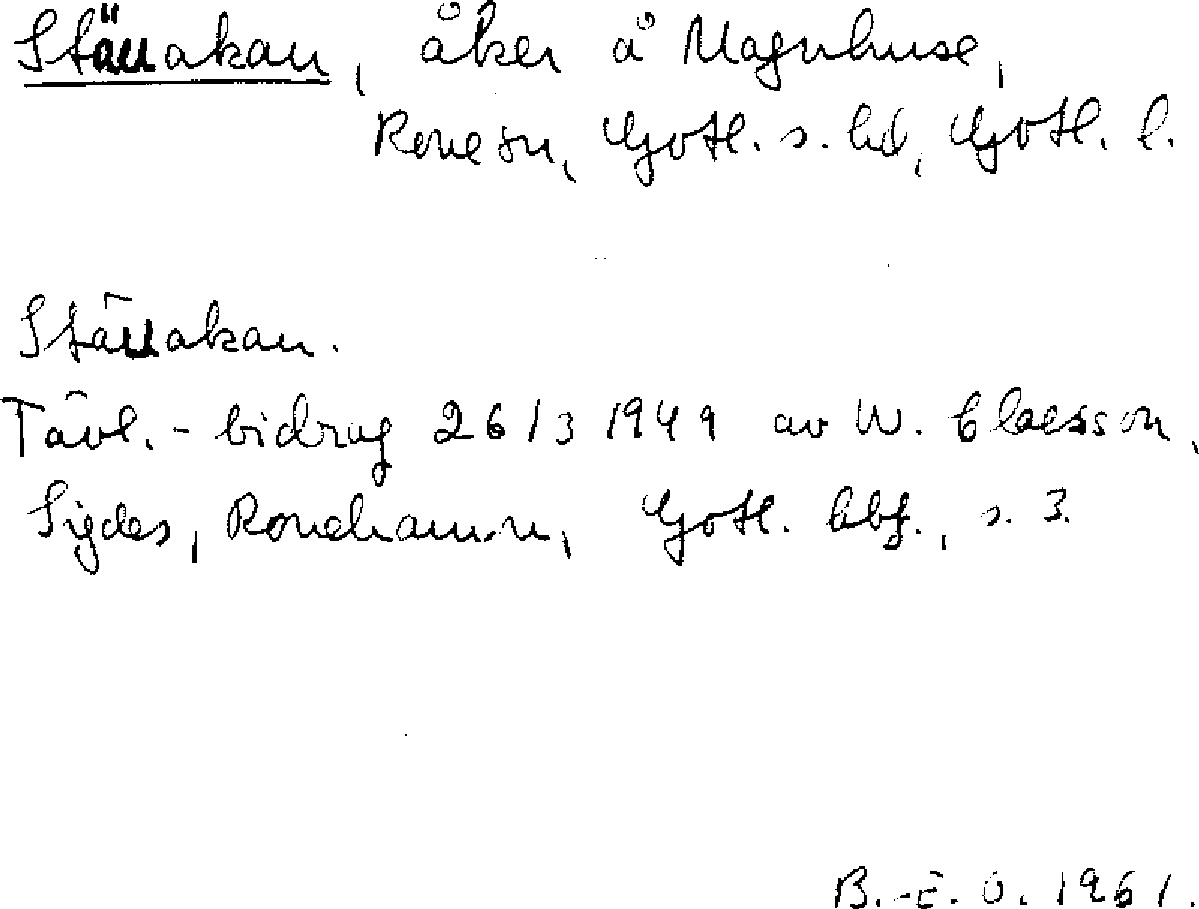 Stäuakau, åker å Magnhuse,
Rone sn, Gotl. s. hd, Gotl. l.
Stäuakau.
Tävl.-bidrag 26/3 1949 av W. Claesson,
Sigdes, Ronehamn, Gotl. bbf., s. 3.
B.-E. O. 1961.